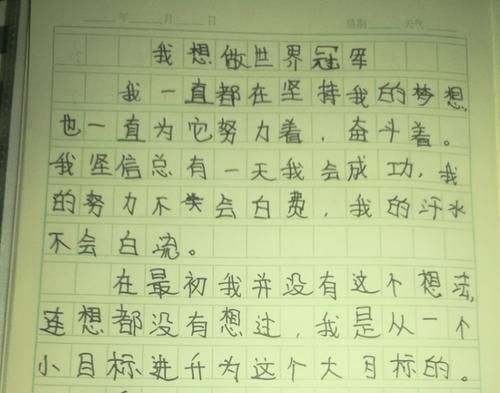 年 月 日 星期 天气
我想做世界冠军
我一直都在坚持我的梦想,
也一直为它努力着,奋斗着。
我坚信总有一天我会成功,我
的努力不会白费,我的汗水
不会白流。
在最初我并没有这个想法,
连想都没有想过,我是从一个
小目标进升为这个大目标的。